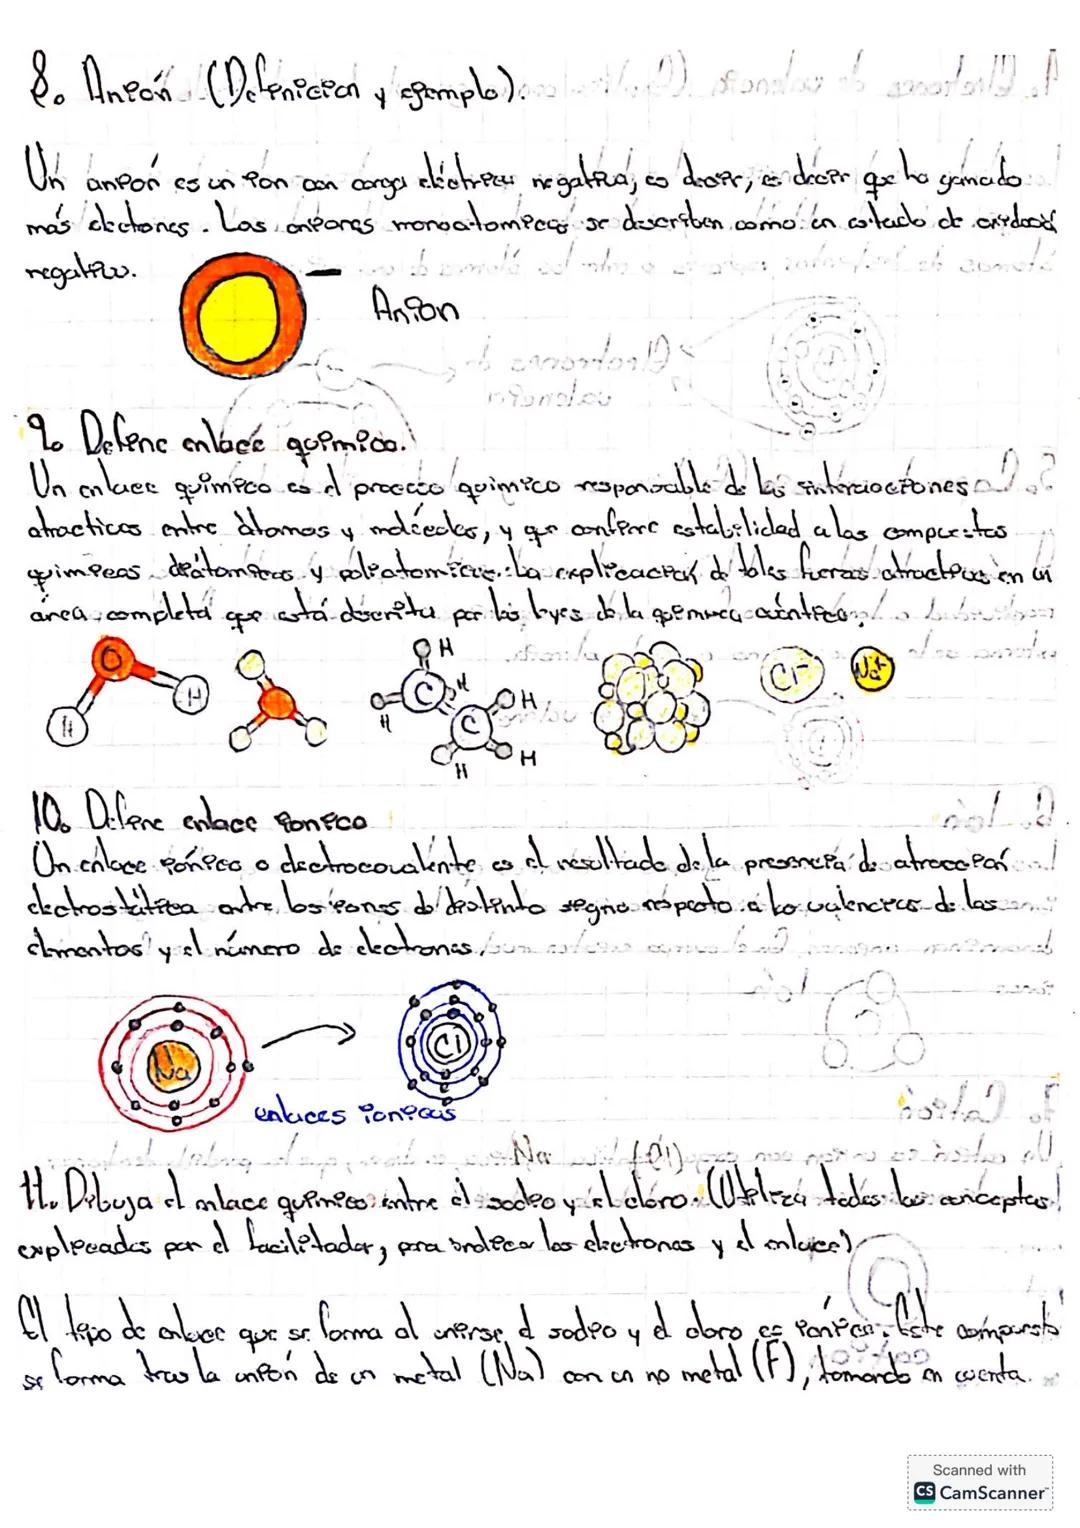 8. Anión (Definicion y ejemplo).
Un anión es un ion con carga eléctrica negativa, es decir, es decir que ha ganado
más electones. Los aniones monoatomicos se describen como en estado de oxidación
negativo.
Anion
9. Define enlace químico.
Un enlace químico es el proceso químico responsable de las interacciones
atracticas entre átomos y moléculas, y que confiere estabilidad a los compuestos
químicos diátomicos y poliatomicos. La explicación de tales fuerzas atractivas en un
área completa que está descrita por las leyes de la química cuántica.
O H H
H C H OH
H C
H H
Cl- Na+
10. Define enlace ionico
Un enlace iónico o electrocovalente es el resultado de la presencia de atracción
electrostática entre los iones de distinto signo respecto a las valencias de los
elementos y el número de electrones.
Na Cl
enlaces ionicos
Na (Cl)
11. Dibuja el enlace químico entre el sodio y el cloro. (Utiliza todos los conceptos
explicados por el facilitador, para indicar los electrones y el enlace)
El tipo de enlace que se forma al unirse el sodio y el cloro es iónico. Este compuesto
se forma tras la unión de un metal (Na) con un no metal (F), tomando en cuenta.
Scanned with
CS CamScanner